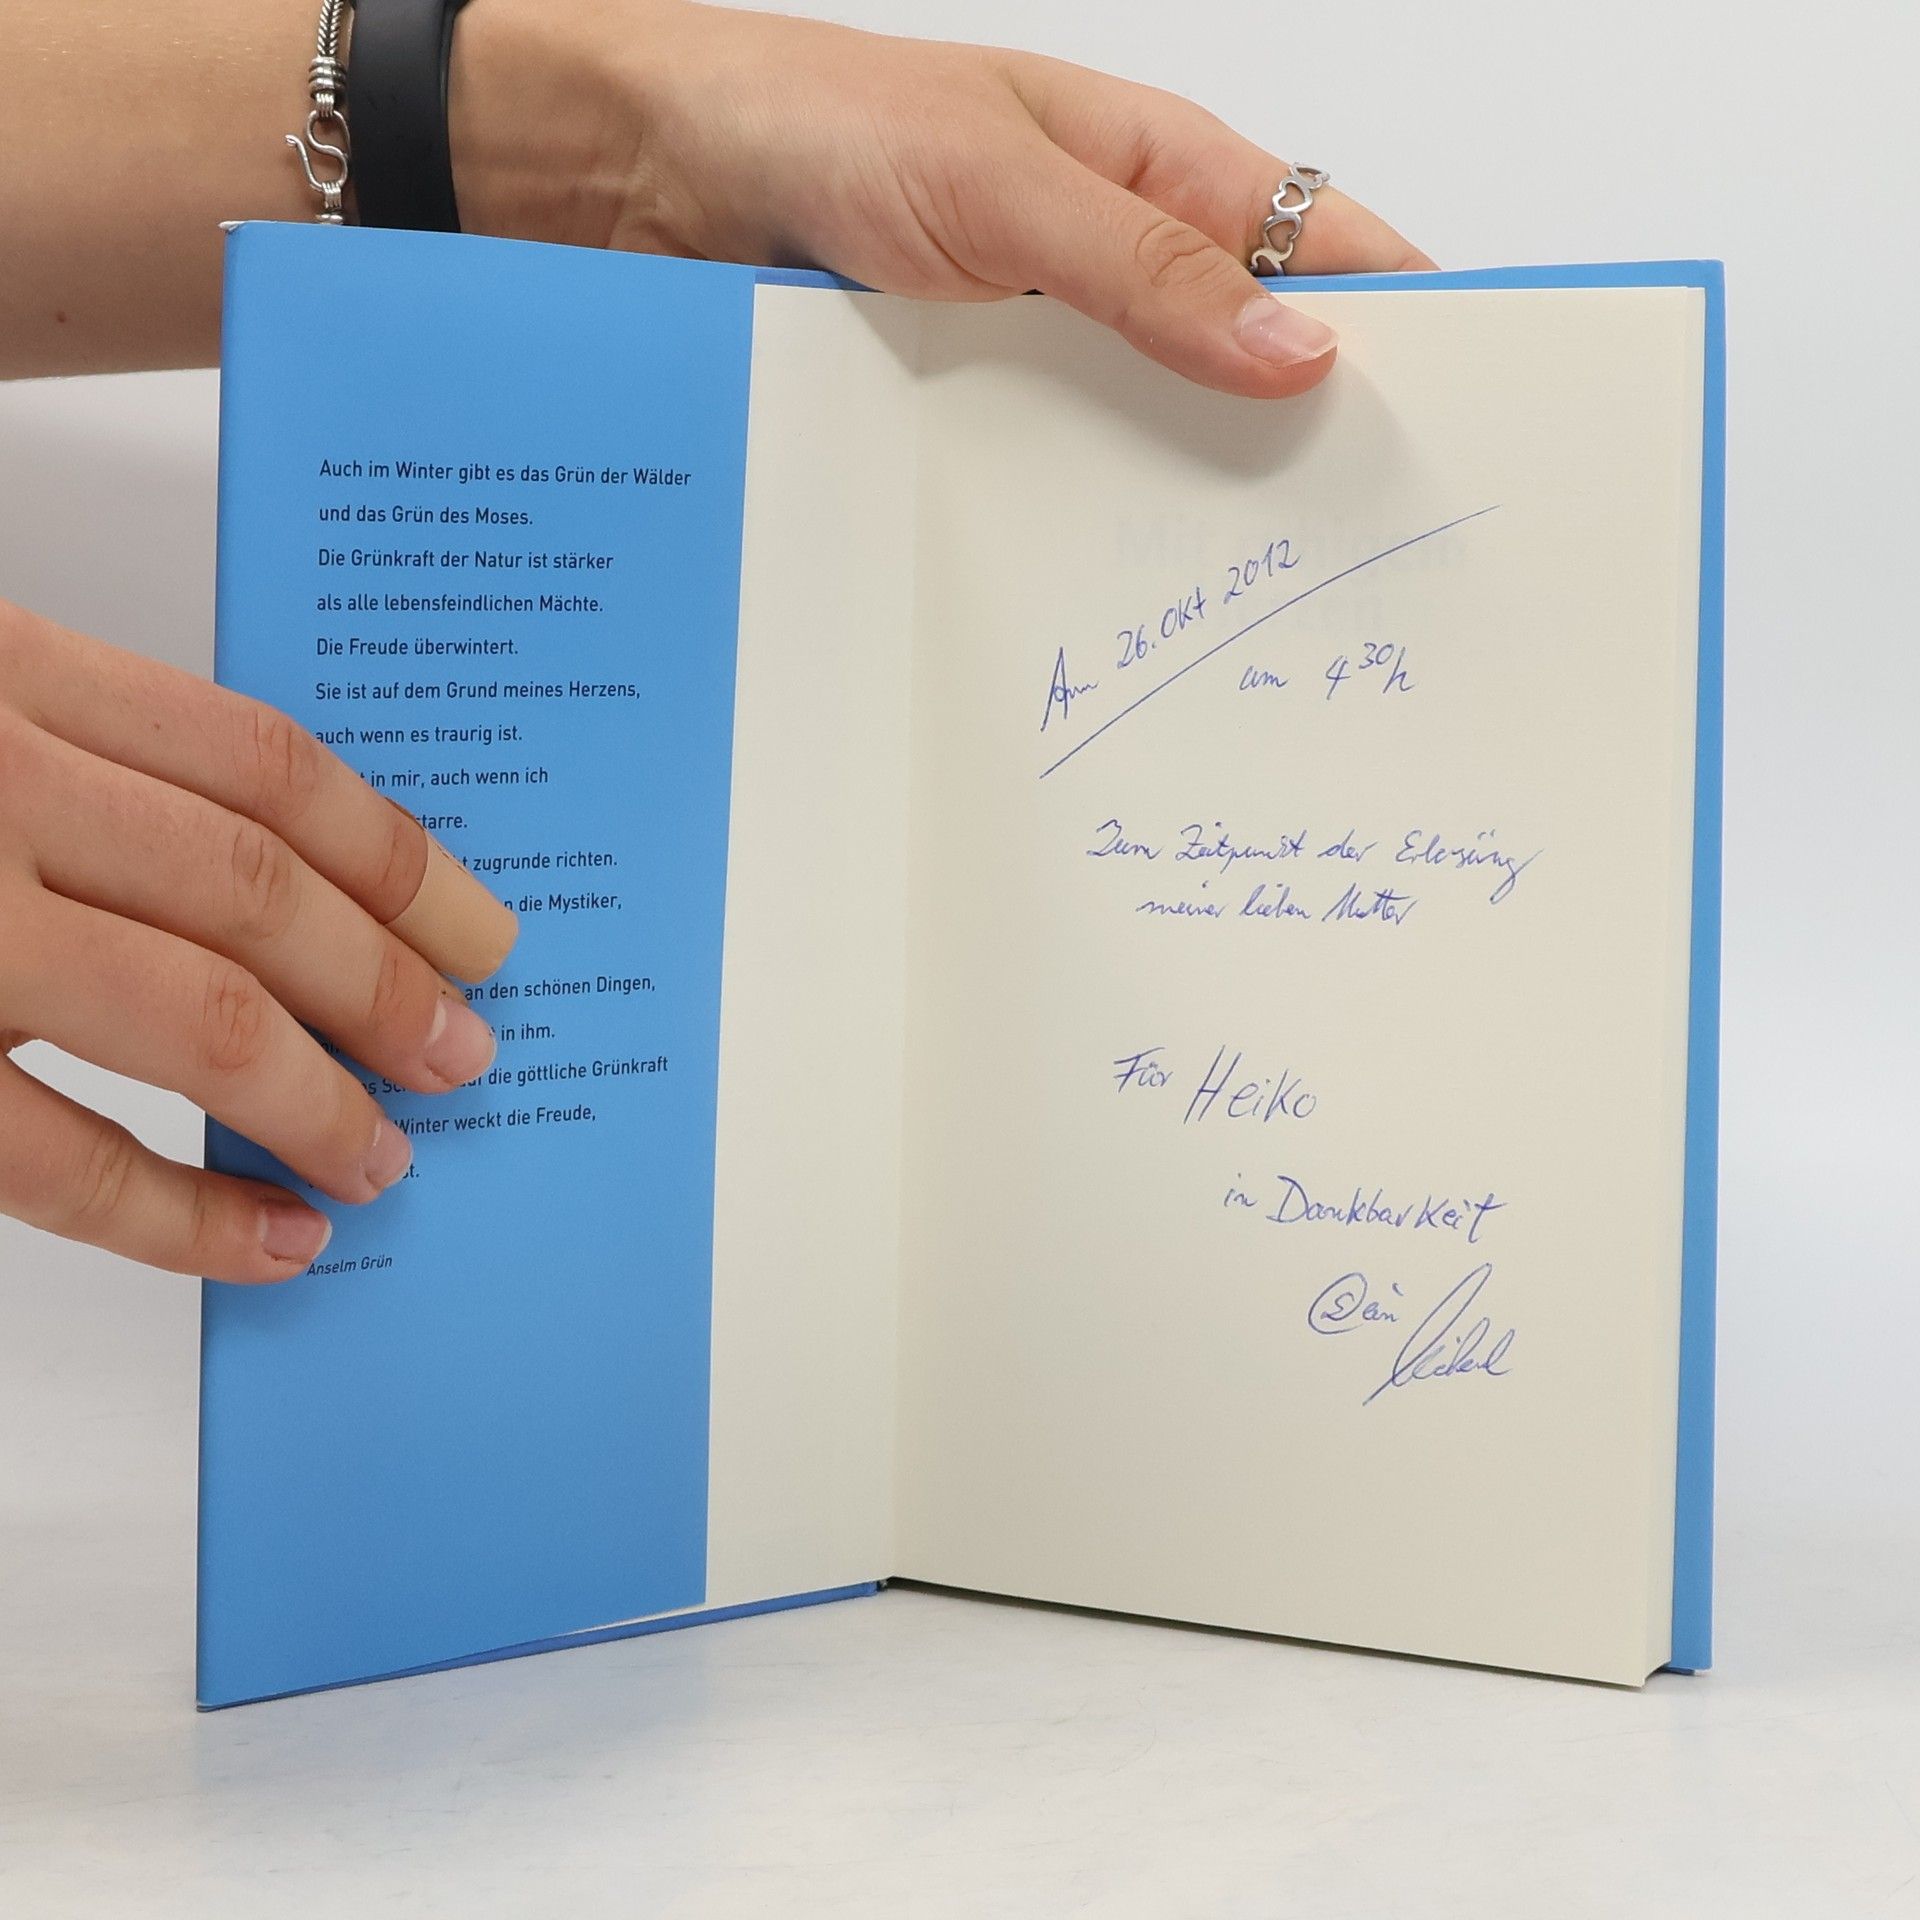 Auch im Winter gibt es das Grün der Wälder
und das Grün des Moses.
Die Grünkraft der Natur ist stärker
als alle lebensfeindlichen Mächte.
Die Freude überwintert.
Sie ist auf dem Grund meines Herzens,
auch wenn es traurig ist.
in mir, auch wenn ich
starre.
zugrunde richten.
die Mystiker,
an den schönen Dingen,
in ihm.
die göttliche Grünkraft
Winter weckt die Freude,
Anselm Grün
Am 26. Okt 2012
um 4 30 h
Zum Zeitpunkt der Erlösung
meiner lieben Mutter
Für Heiko
in Dankbarkeit
Dein